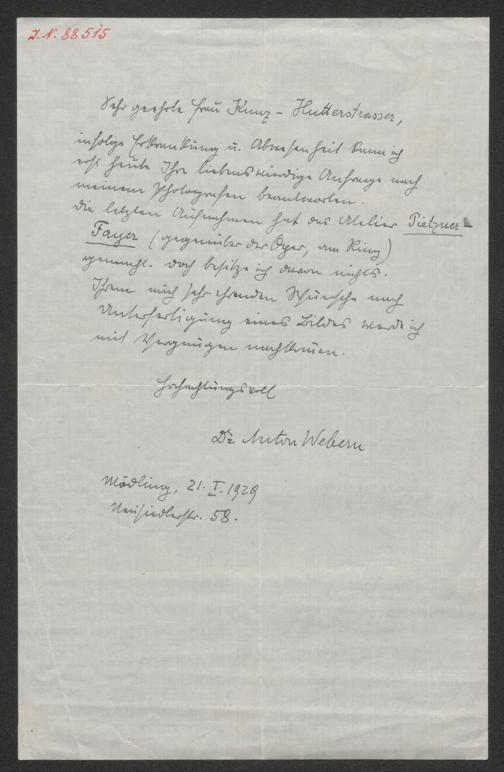 J.N. 88515
Sehr geehrte Frau Kunz - Hutterstrasser,
infolge Erkrankung u. Abwesenheit kann ich
erst heute Ihre liebenswürdige Anfrage nach
meinem Photografen beantworten.
Die letzten Aufnahmen hat das Atelier Pietzner
Fayer (gegenüber der Oper, am Ring)
gemacht. Doch besitze ich davon nichts.
Ihrem mich sehr ehrenden Wunsche nach
Unterfertigung eines Bildes werde ich
mit Vergnügen nachkommen.
Hochachtungsvoll
Dr Anton Webern
Mödling, 21. I. 1929
Neusiedlerstr. 58.